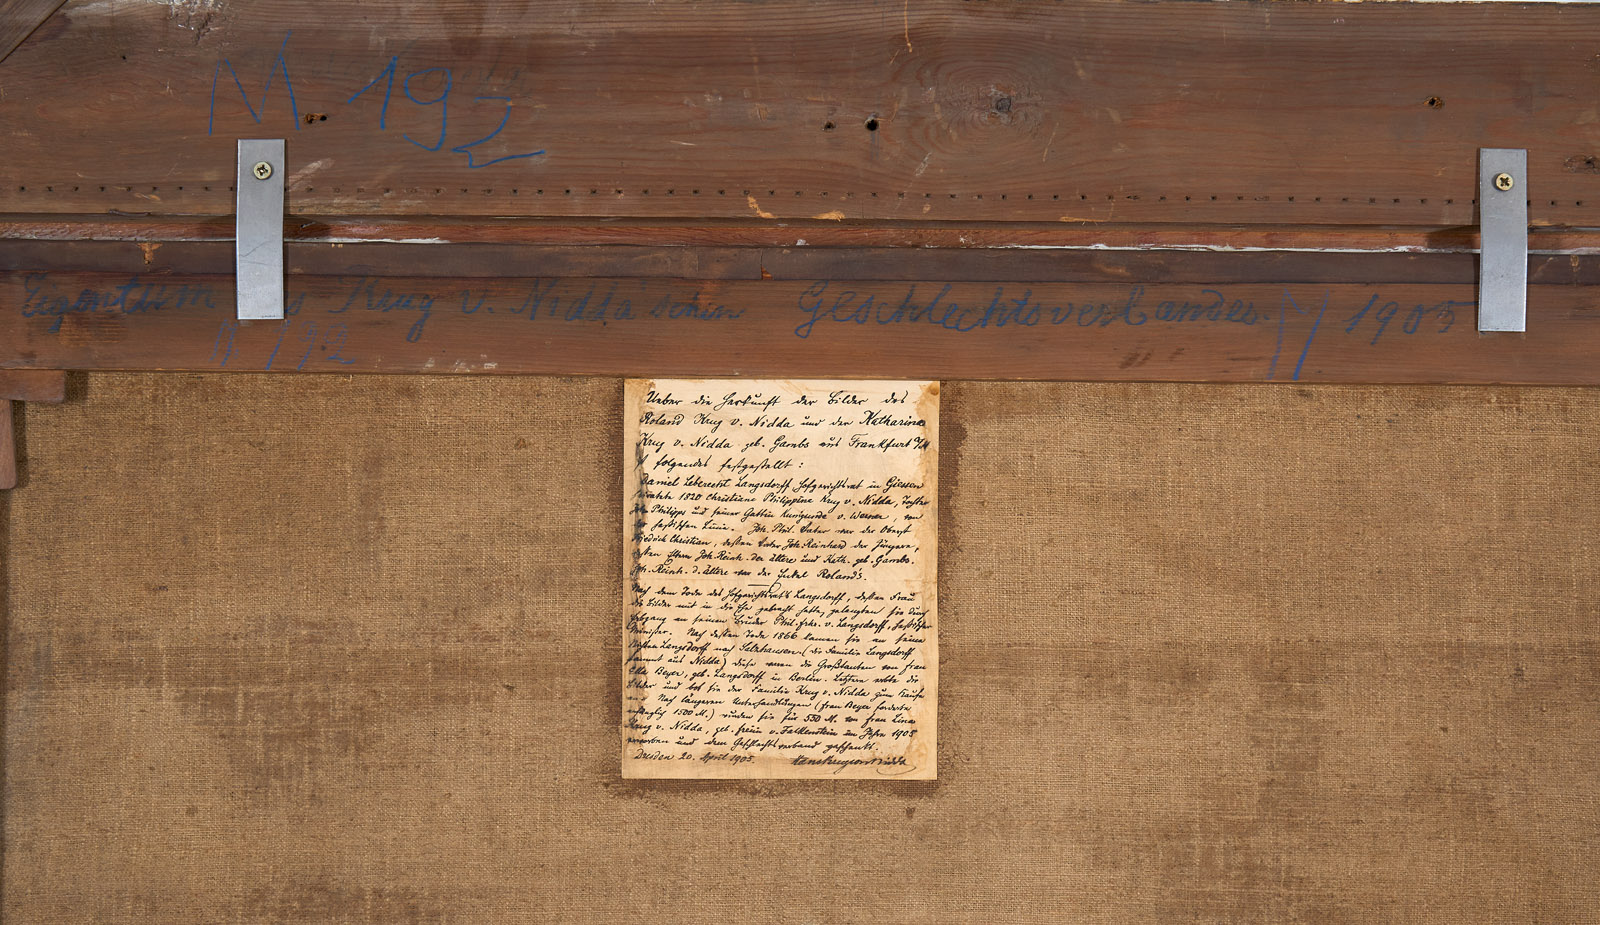 M. 192
Eigentum s Krug v. Nidda'schen Geschlechtsverbandes. M 1905
M 192
Ueber die Herkunft der Bilder des
Roland Krug v. Nidda und der Katharina
Krug v. Nidda geb. Gambs aus Frankfurt a/M
ist folgendes festgestellt:
Daniel Leberecht Langsdorff, Hofgerichtsrat in Giessen
heiratete 1820 Christiane Philippine Krug v. Nidda, Tochter
Joh. Philipps und seiner Gattin Kunigunde v. , von
der hessischen Linie. Joh. Phil. Vater war der Oberst
Friedrich Christian, dessen Vater Joh. Reinhard der Jüngere,
dessen Eltern Joh. Reinh. der ältere und Kath. geb. Gambs.
Joh. Reinh. d. ältere war der Enkel Rolands.
Nach dem Tode des Hofgerichtsrat's Langsdorff, dessen Frau
die Bilder mit in die Ehe gebracht hatte, gelangten sie durch
Erbgang an seinen Bruder Phil. Frhr. v. Langsdorff, hessischer
Minister. Nach dessen Tode 1866 kamen sie an seine
Langsdorff nach Salzhausen (die Familie Langsdorff
stammt aus Nidda) diese waren die Großtanten von Frau
Beyer, geb. Langsdorff in Berlin. Letztere erbte die
Bilder und bot sie der Familie Krug v. Nidda zum Kaufe
an. Nach längeren Unterhandlungen (Frau Beyer forderte
anfänglich 1500 M.) wurden sie für 550 M. von Frau Lina
Krug v. Nidda, geb. Freiin v. Falkenstein im Jahre 1905
erworben und dem Geschlechtsverband geschenkt.
Dresden 20. April 1905. Hans Krug von Nidda